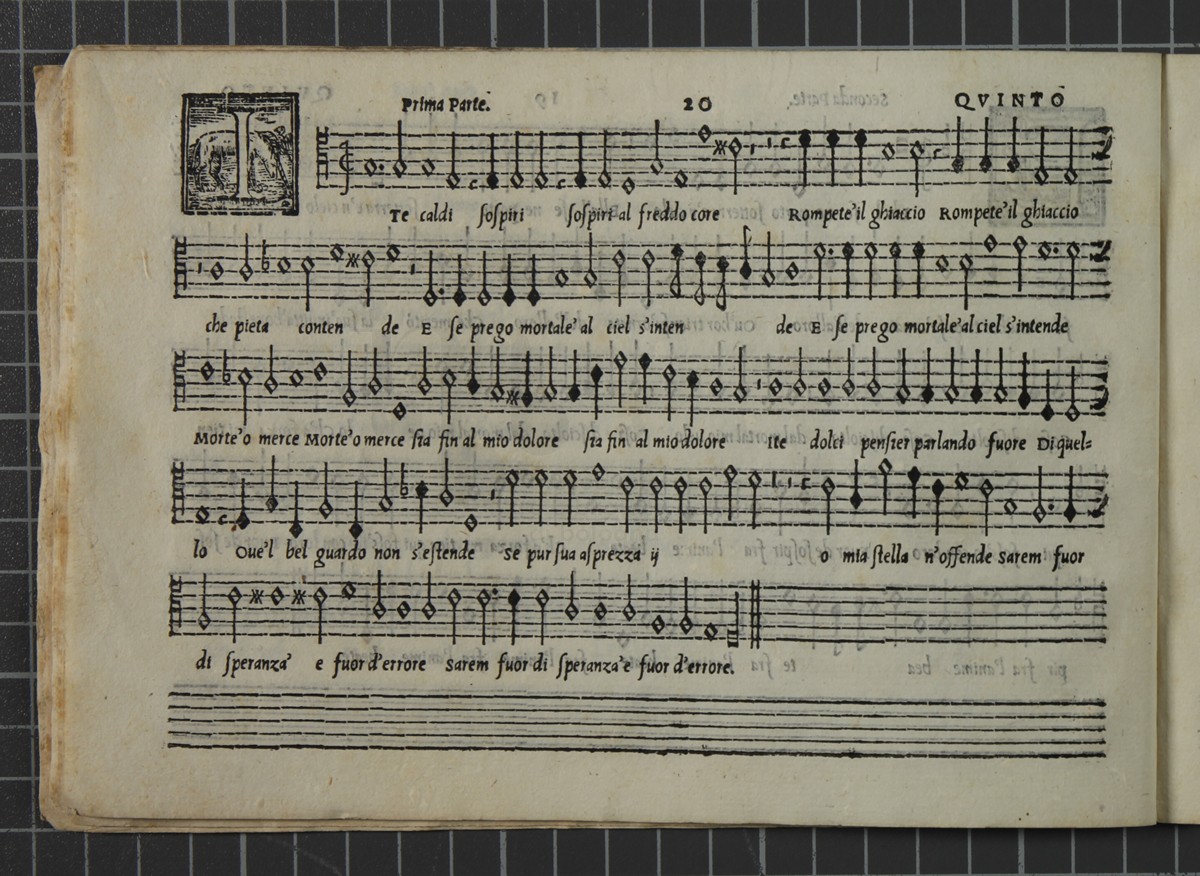 Prima Parte. 20 QVINTO
ITe caldi sospiri sospiri al freddo core Rompete'il ghiaccio Rompete'il ghiaccio
che pieta conten de E se prego mortale'al ciel s'inten de E se prego mortale'al ciel s'intende
Morte'o merce Morte'o merce sia fin al mio dolore sia fin al mio dolore Ite dolci pensier parlando fuore Di quel=
lo Oue'l bel guardo non s'estende Se pur sua asprezza ij o mia stella n'offende Sarem fuor
di speranza' e fuor d'errore Sarem fuor di speranza'e fuor d'errore.